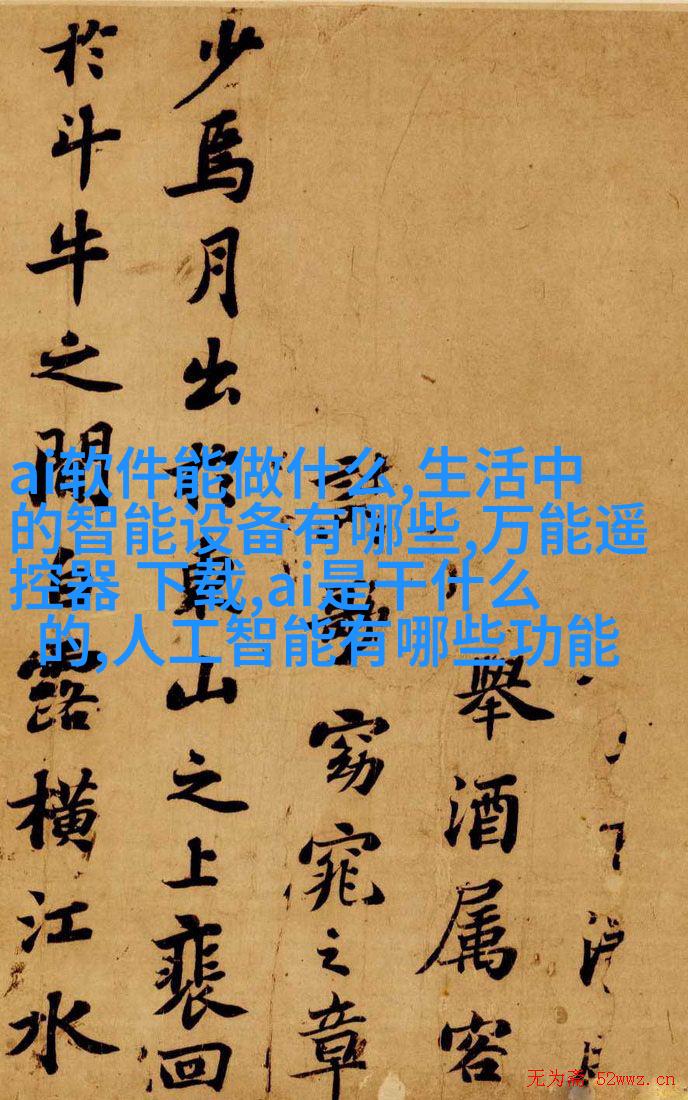 舉酒属客
詩歌窈窕之章
少焉月出於東山之上裴回
於斗牛之間白露橫江水
ai软件能做什么,生活中
的智能设备有哪些,万能遥
控器 下载,ai是干什么
的,人工智能有哪些功能
无为斋 52wwz.cn